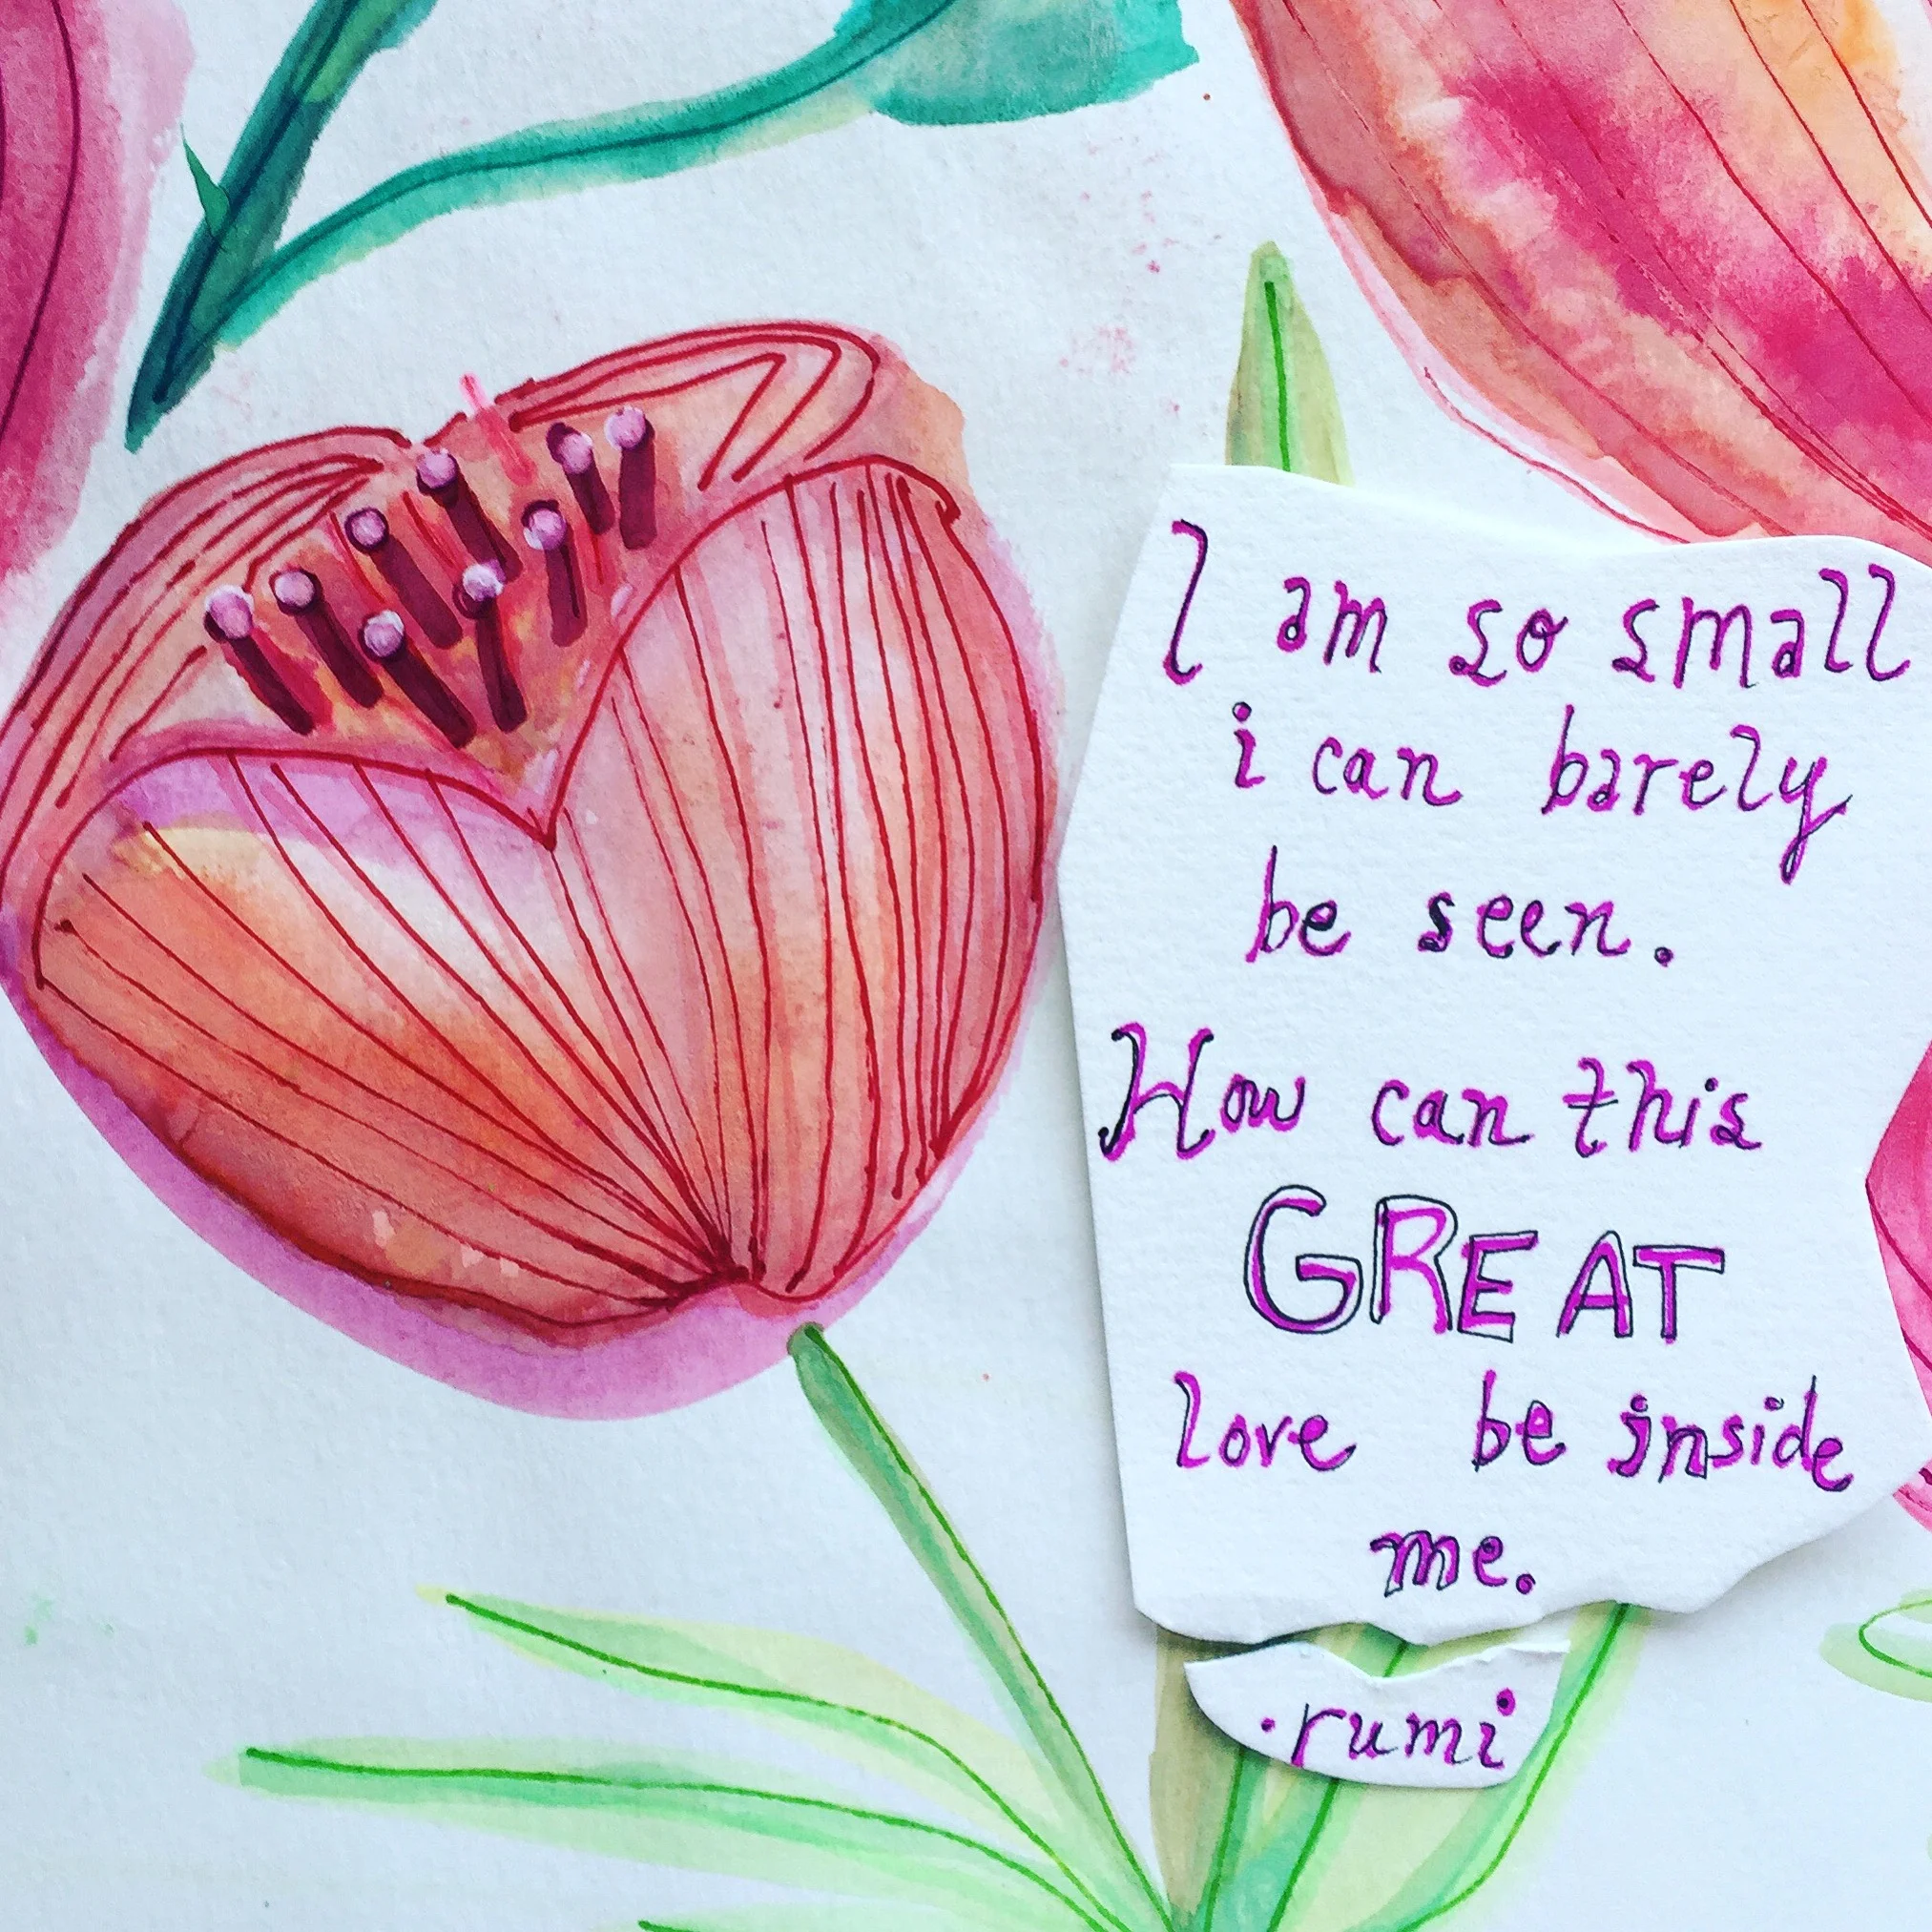 I am so small
i can barely
be seen.
How can this
GREAT
love be inside
me.
.rumi